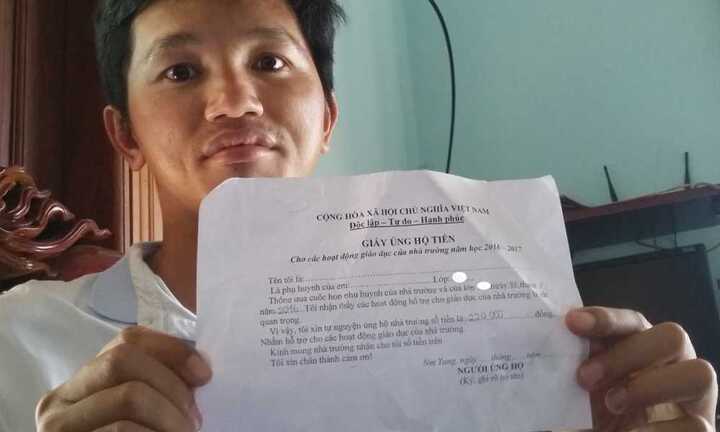 CỘNG HÒA XÃ HỘI CHỦ NGHĨA VIỆT NAM
Độc lập – Tự do – Hạnh phúc
GIẤY ỦNG HỘ TIỀN
Cho các hoạt động giáo dục của nhà trường năm học 2016 - 2017
Tên tôi là:
Là phụ huynh của em: Lớp
Thông qua cuộc họp phụ huynh của nhà trường và của lớp ngày
năm 2016. Tôi nhận thấy các hoạt động hỗ trợ cho giáo dục của nhà trường là
quan trọng.
Vì vậy, tôi xin tự nguyện ủng hộ nhà trường số tiền là: 220.000 đồng.
Nhằm hỗ trợ cho các hoạt động giáo dục của nhà trường.
Kính mong nhà trường nhận cho tôi số tiền trên
Tôi xin chân thành cảm ơn!
ngày tháng năm
NGƯỜI ỦNG HỘ
(Ký, ghi rõ họ tên)